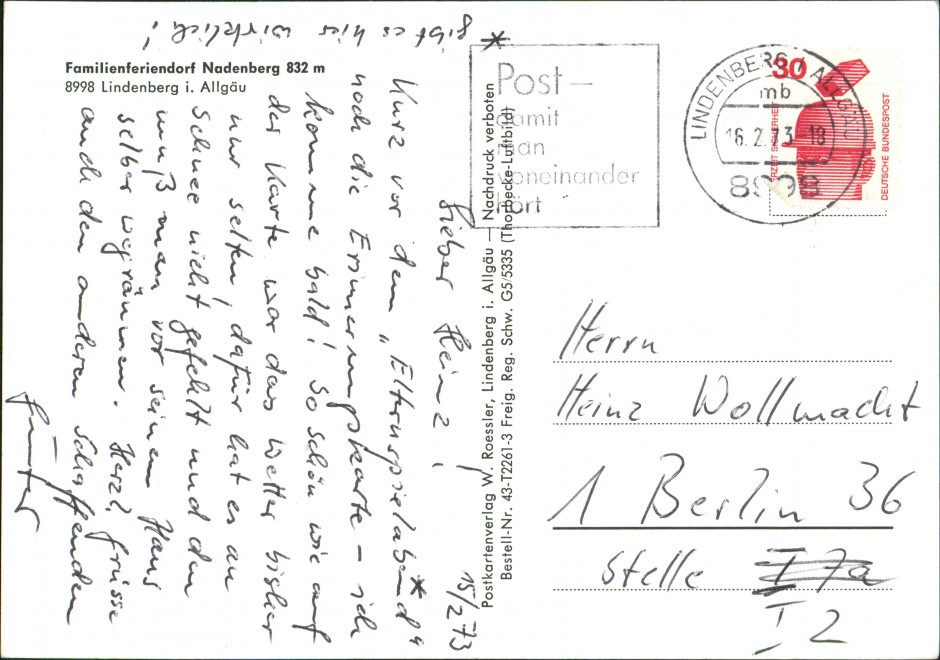 Familienferiendorf Nadenberg 832 m
8998 Lindenberg i. Allgäu
15/2 73
Lieber Heinz!
Kurz vor dem „Elternspielabend"*
noch die Erinnerungskarte – ich
komme bald! So schön wie auf
der Karte war das Wetter bisher
nur selten, dafür hat es an
Schnee nicht gefehlt und den
muß man vor seinem Haus
selber wegräumen. Herzl. Grüsse
auch den anderen Schaffenden
Günter
* gibt es hier wirklich!
Postkartenverlag W. Roessler, Lindenberg i. Allgäu — Nachdruck verboten
Bestell-Nr. 43-T2261-3 Freig. Reg. Schw. G5/5335 (Thorbecke-Luftbild)
Post –
damit
man
voneinander
hört
LINDENBERG / ALLGÄU
mb
16.2.73-18
8998
30
DEUTSCHE BUNDESPOST
Herrn
Heinz Wollmacht
1 Berlin 36
Stelle I 7a
I 2